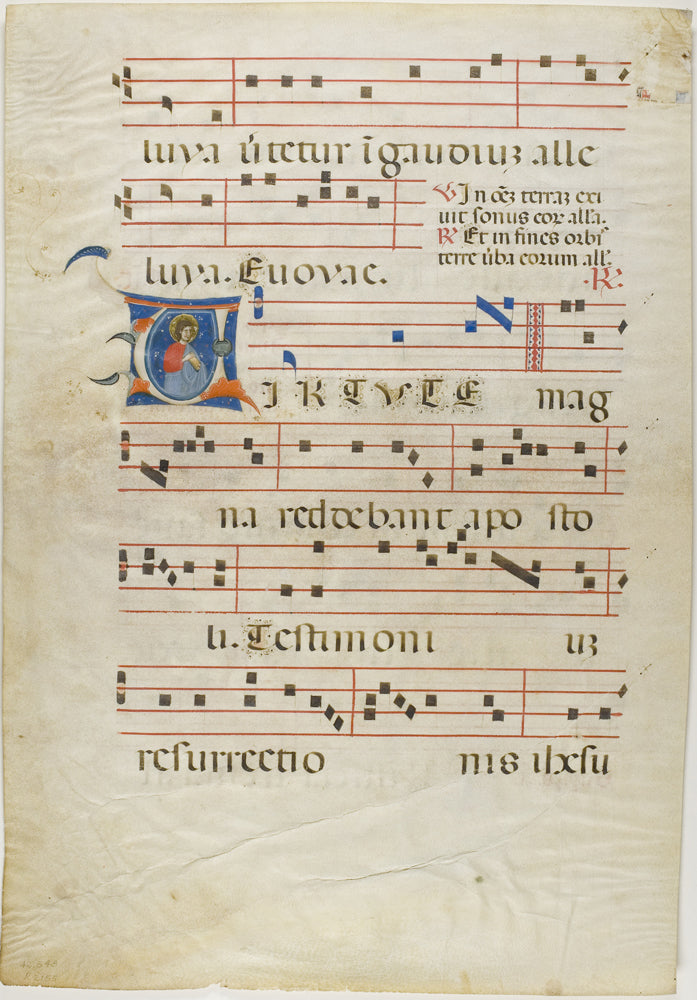 luya ūtetur ī gaudiuȝ alle
luya. Euovae.
℣ In oēȝ terraȝ exi
uit sonus eoꝝ all'a.
℟ Et in fines orbis
terre ūba eorum all'.
℟.
VIRTVTE mag
na reddebant aposto
li. Testimoni uȝ
resurrectio nis ihesu